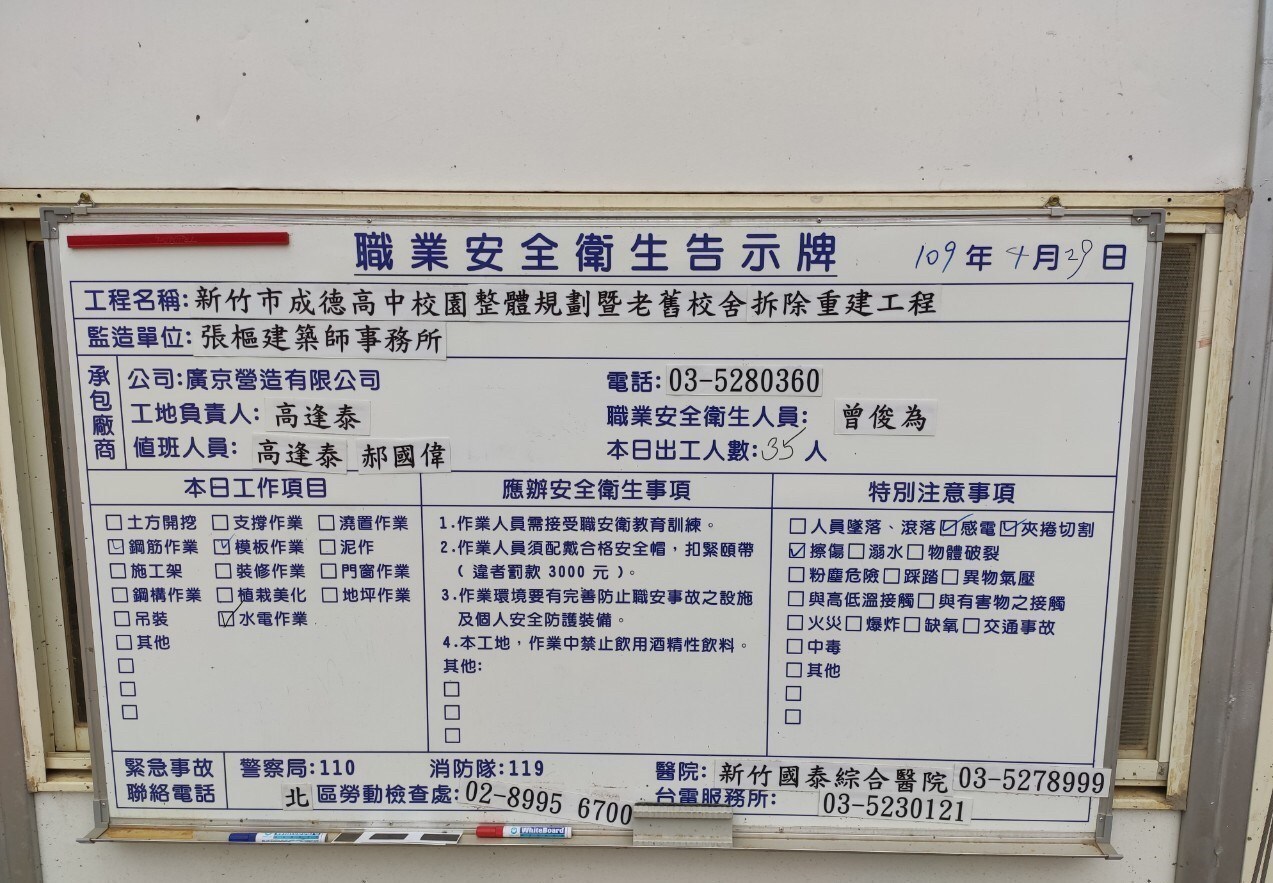 職業安全衛生告示牌 109年4月29日
工程名稱:新竹市成德高中校園整體規劃暨老舊校舍拆除重建工程
監造單位:張樞建築師事務所
承包廠商
公司:廣京營造有限公司 電話:03-5280360
工地負責人:高逢泰 職業安全衛生人員:曾俊為
值班人員:高逢泰 郝國偉 本日出工人數:35人
本日工作項目
□土方開挖 □支撐作業 □澆置作業
☑鋼筋作業 ☑模板作業 □泥作
□施工架 □裝修作業 □門窗作業
□鋼構作業 □植栽美化 □地坪作業
□吊裝 ☑水電作業
□其他
□
□
□
應辦安全衛生事項
1.作業人員需接受職安衛教育訓練。
2.作業人員須配戴合格安全帽,扣緊頤帶
(違者罰款3000元)。
3.作業環境要有完善防止職安事故之設施
及個人安全防護裝備。
4.本工地,作業中禁止飲用酒精性飲料。
其他:
□
□
□
特別注意事項
□人員墜落、滾落☑感電☑夾捲切割
☑擦傷□溺水□物體破裂
□粉塵危險□踩踏□異物氣壓
□與高低溫接觸□與有害物之接觸
□火災□爆炸□缺氧□交通事故
□中毒
□其他
□
□
緊急事故
聯絡電話
警察局:110 消防隊:119 醫院:新竹國泰綜合醫院 03-5278999
北區勞動檢查處:02-8995 6700 台電服務所: 03-5230121
WhiteBoard